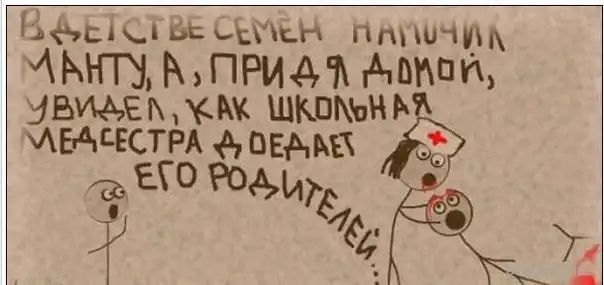 В ДЕТСТВЕ СЕМЁН НАМОЧИЛ
МАНТУ, А, ПРИДЯ ДОМОЙ,
УВИДЕЛ, КАК ШКОЛЬНАЯ
МЕДСЕСТРА ДОЕДАЕТ
ЕГО РОДИТЕЛЕЙ...